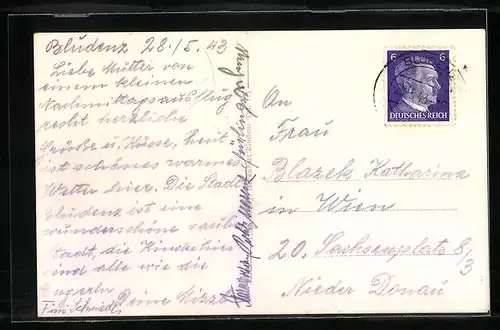 Bludenz 28./5. 43
Liebe Mutter von
einem kleinen
Nachmittagsausflug
recht herzliche
Grüße u. Küsse, heut
ist schönes warmes
Wetter hier. Die Stadt
Bludenz ist eine
wunderschöne saubere
Stadt, die Kinder hier
sind alle wie die
Engerln
Deine Mizzi
Fam. Schmidt
An
Frau
Blazek Katharina
in Wien
20. Sachsenplatz 8/3
Nieder Donau
6 6
DEUTSCHES REICH